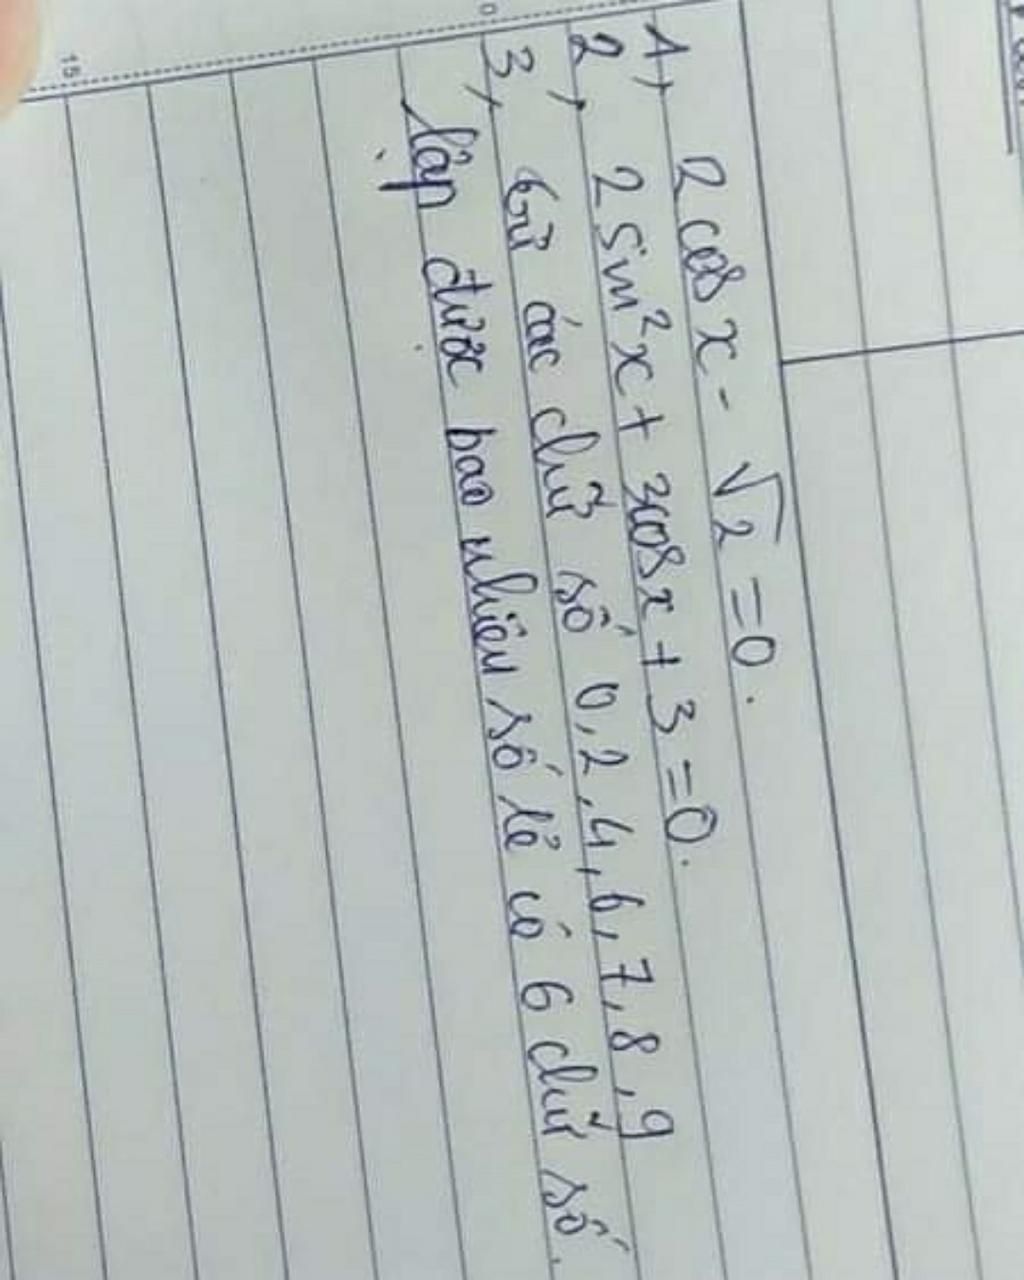 1, 2 cos x - √2 = 0.
2, 2 sin²x + 3cosx + 3 = 0.
3, từ các chữ số 0, 2, 4, 6, 7, 8, 9
lập được bao nhiêu số lẻ có 6 chữ số.
15